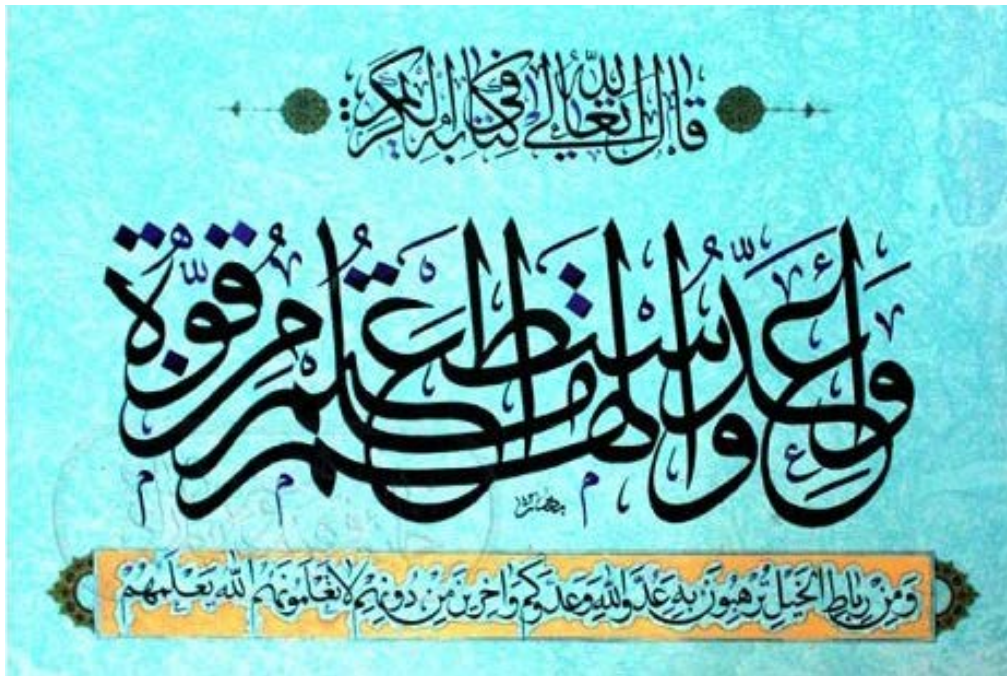 قال الله تعالى في كتابه الكريم:
وَأَعِدُّوا لَهُم مَّا اسْتَطَعْتُم مِّن قُوَّةٍ
وَمِنْ رِبَاطِ الْخَيْلِ تُرْهِبُونَ بِهِ عَدُوَّ اللهِ وَعَدُوَّكُمْ وَاٰخَرِينَ مِنْ دُونِهِمْ لَا تَعْلَمُونَهُمُ اللهُ يَعْلَمُهُمْ